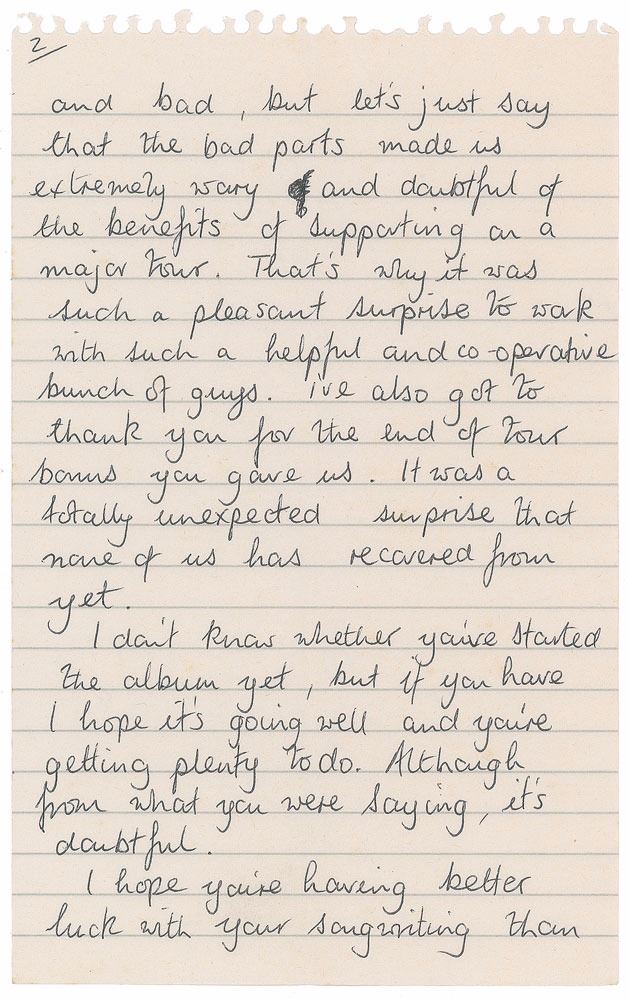 2
and bad, but let's just say
that the bad parts made us
extremely wary and doubtful of
the benefits of supporting on a
major tour. That's why it was
such a pleasant surprise to work
with such a helpful and co-operative
bunch of guys. i've also got to
thank you for the end of tour
bonus you gave us. It was a
totally unexpected surprise that
none of us has recovered from
yet.
I don't know whether you've started
the album yet, but if you have
I hope it's going well and you're
getting plenty to do. Although
from what you were saying, it's
doubtful.
I hope you're having better
luck with your songwriting than